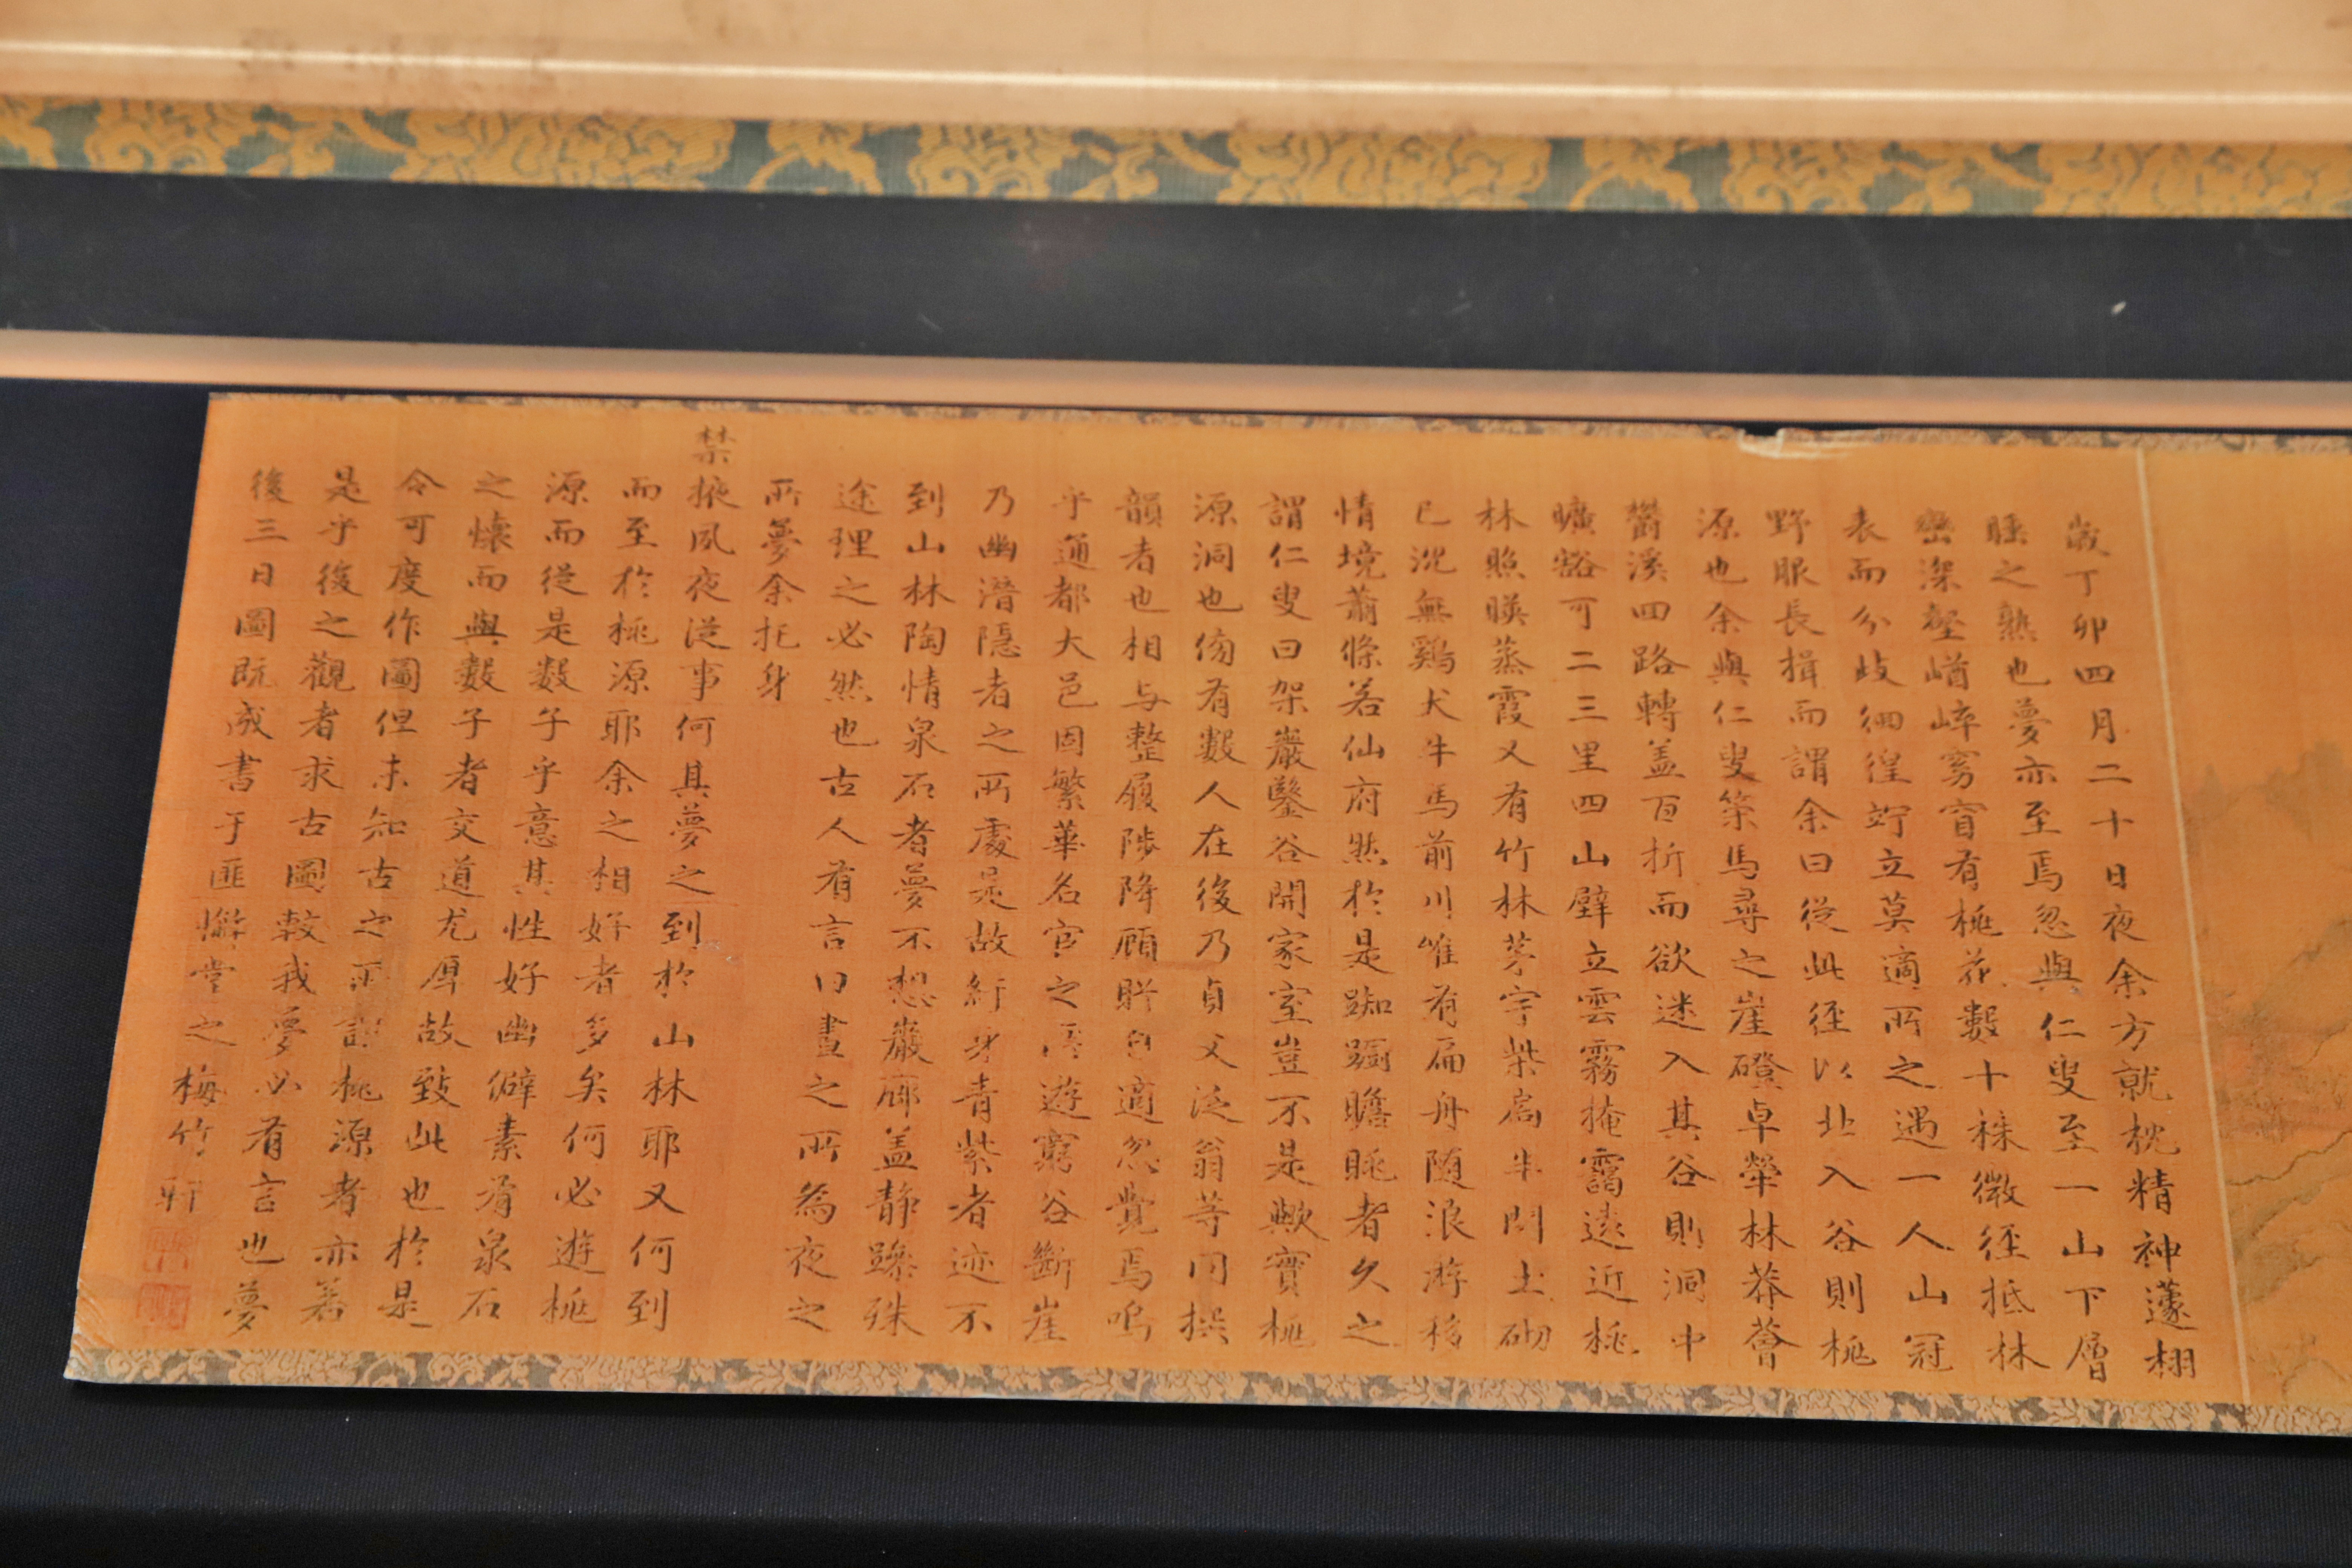 歲丁卯四月二十日夜余方就枕精神蘧栩
睡之熟也夢亦至焉忽與仁叟至一山下層
巒深壑崷崒窈窅有桃花數十株微徑抵林
表而分歧徊徨竚立莫適所之遇一人山冠
野服長揖而謂余曰從此徑以北入谷則桃
源也余與仁叟策馬尋之崖磴卓犖林莽薈
鬱溪回路轉盖百折而欲迷入其谷則洞中
曠豁可二三里四山壁立雲霧掩靄遠近桃
林照暎蒸霞又有竹林茅宇柴扃半開土砌
已沈無鷄犬牛馬前川唯有扁舟随浪游移
情境蕭條若仙府然於是踟躕瞻眺者久之
謂仁叟曰架巖鑿谷開家室豈不是歟實桃
源洞也傍有數人在後乃貞父泛翁等同撰
韻者也相与整履陟降顧眄自適忽覺焉嗚
乎通都大邑固繁華名宦之所遊窮谷斷崖
乃幽潛隱者之所處是故紆身青紫者迹不
到山林陶情泉石者夢不想巖廊盖静躁殊
途理之必然也古人有言曰晝之所為夜之
所夢余托身
禁掖夙夜從事何其夢之到於山林耶又何到
而至於桃源耶余之相好者多矣何必遊桃
源而從是數子乎意其性好幽僻素有泉石
之懐而與數子者交道尤厚故致此也於是
令可度作圖但未知古之所謂桃源者亦若
是乎後之觀者求古圖較我夢必有言也夢
後三日圖既成書于匪懈堂之梅竹軒